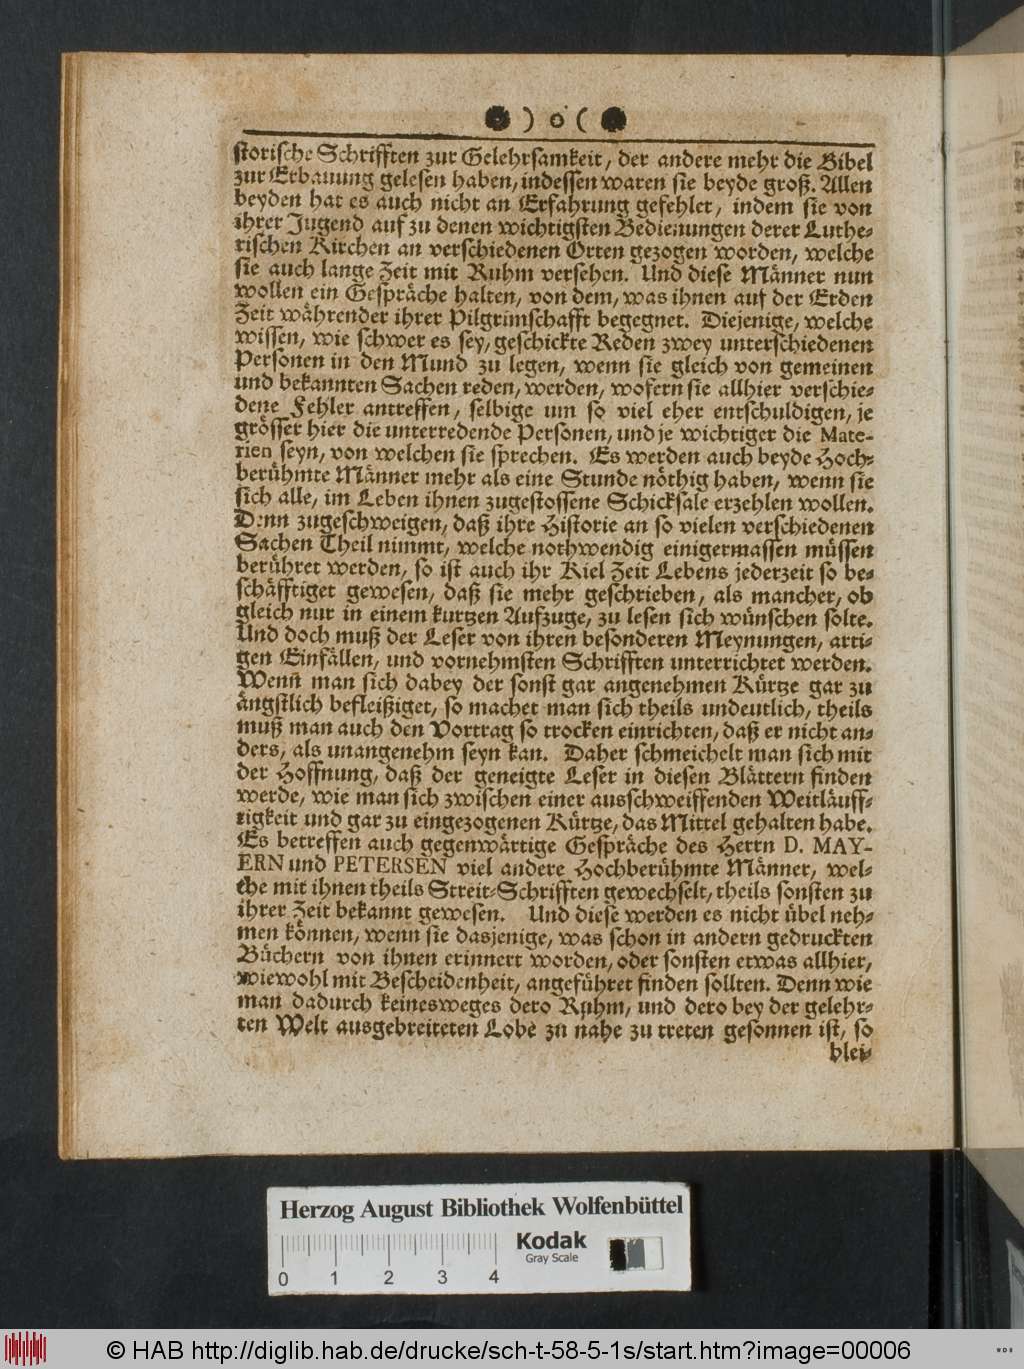 ) o (
storische Schrifften zur Gelehrsamkeit, der andere mehr die Bibel
zur Erbauung gelesen haben, indessen waren sie beyde groß. Allen
beyden hat es auch nicht an Erfahrung gefehlet, indem sie von
ihrer Jugend auf zu denen wichtigsten Bedienungen derer Luthe-
rischen Kirchen an verschiedenen Orten gezogen worden, welche
sie auch lange Zeit mit Ruhm versehen. Und diese Männer nun
wollen ein Gespräche halten, von dem, was ihnen auf der Erden
Zeit währender ihrer Pilgrimschafft begegnet. Diejenige, welche
wissen, wie schwer es sey, geschickte Reden zwey unterschiedenen
Personen in den Mund zu legen, wenn sie gleich von gemeinen
und bekannten Sachen reden, werden, wofern sie allhier verschie-
dene Fehler antreffen, selbige um so viel eher entschuldigen, je
grösser hier die unterredende Personen, und je wichtiger die Mate-
rien seyn, von welchen sie sprechen. Es werden auch beyde Hoch-
berühmte Männer mehr als eine Stunde nöthig haben, wenn sie
sich alle, im Leben ihnen zugestossene Schicksale erzehlen wollen.
Denn zugeschweigen, daß ihre Historie an so vielen verschiedenen
Sachen Theil nimmt, welche nothwendig einigermassen müssen
berühret werden, so ist auch ihr Kiel Zeit Lebens jederzeit so be-
schäfftiget gewesen, daß sie mehr geschrieben, als mancher, ob
gleich nur in einem kurtzen Aufzuge, zu lesen sich wünschen solte.
Und doch muß der Leser von ihren besonderen Meynungen, arti-
gen Einfällen, und vornehmsten Schrifften unterrichtet werden.
Wenn man sich dabey der sonst gar angenehmen Kürtze gar zu
ängstlich befleißiget, so machet man sich theils undeutlich, theils
muß man auch den Vortrag so trocken einrichten, daß er nicht an-
ders, als unangenehm seyn kan. Daher schmeichelt man sich mit
der Hoffnung, daß der geneigte Leser in diesen Blättern finden
werde, wie man sich zwischen einer ausschweiffenden Weitläuff-
tigkeit und gar zu eingezogenen Kürtze, das Mittel gehalten habe.
Es betreffen auch gegenwärtige Gespräche des Herrn D. MAY-
ERN und PETERSEN viel andere Hochberühmte Männer, wel-
che mit ihnen theils Streit-Schrifften gewechselt, theils sonsten zu
ihrer Zeit bekannt gewesen. Und diese werden es nicht übel neh-
men können, wenn sie dasjenige, was schon in andern gedruckten
Büchern von ihnen erinnert worden, oder sonsten etwas allhier,
wiewohl mit Bescheidenheit, angeführet finden sollten. Denn wie
man dadurch keinesweges dero Ruhm, und dero bey der gelehr-
ten Welt ausgebreiteten Lobe zu nahe zu treten gesonnen ist, so
blei-
Herzog August Bibliothek Wolfenbüttel
Kodak
Gray Scale
0 1 2 3 4
© HAB http://diglib.hab.de/drucke/sch-t-58-5-1s/start.htm?image=00006